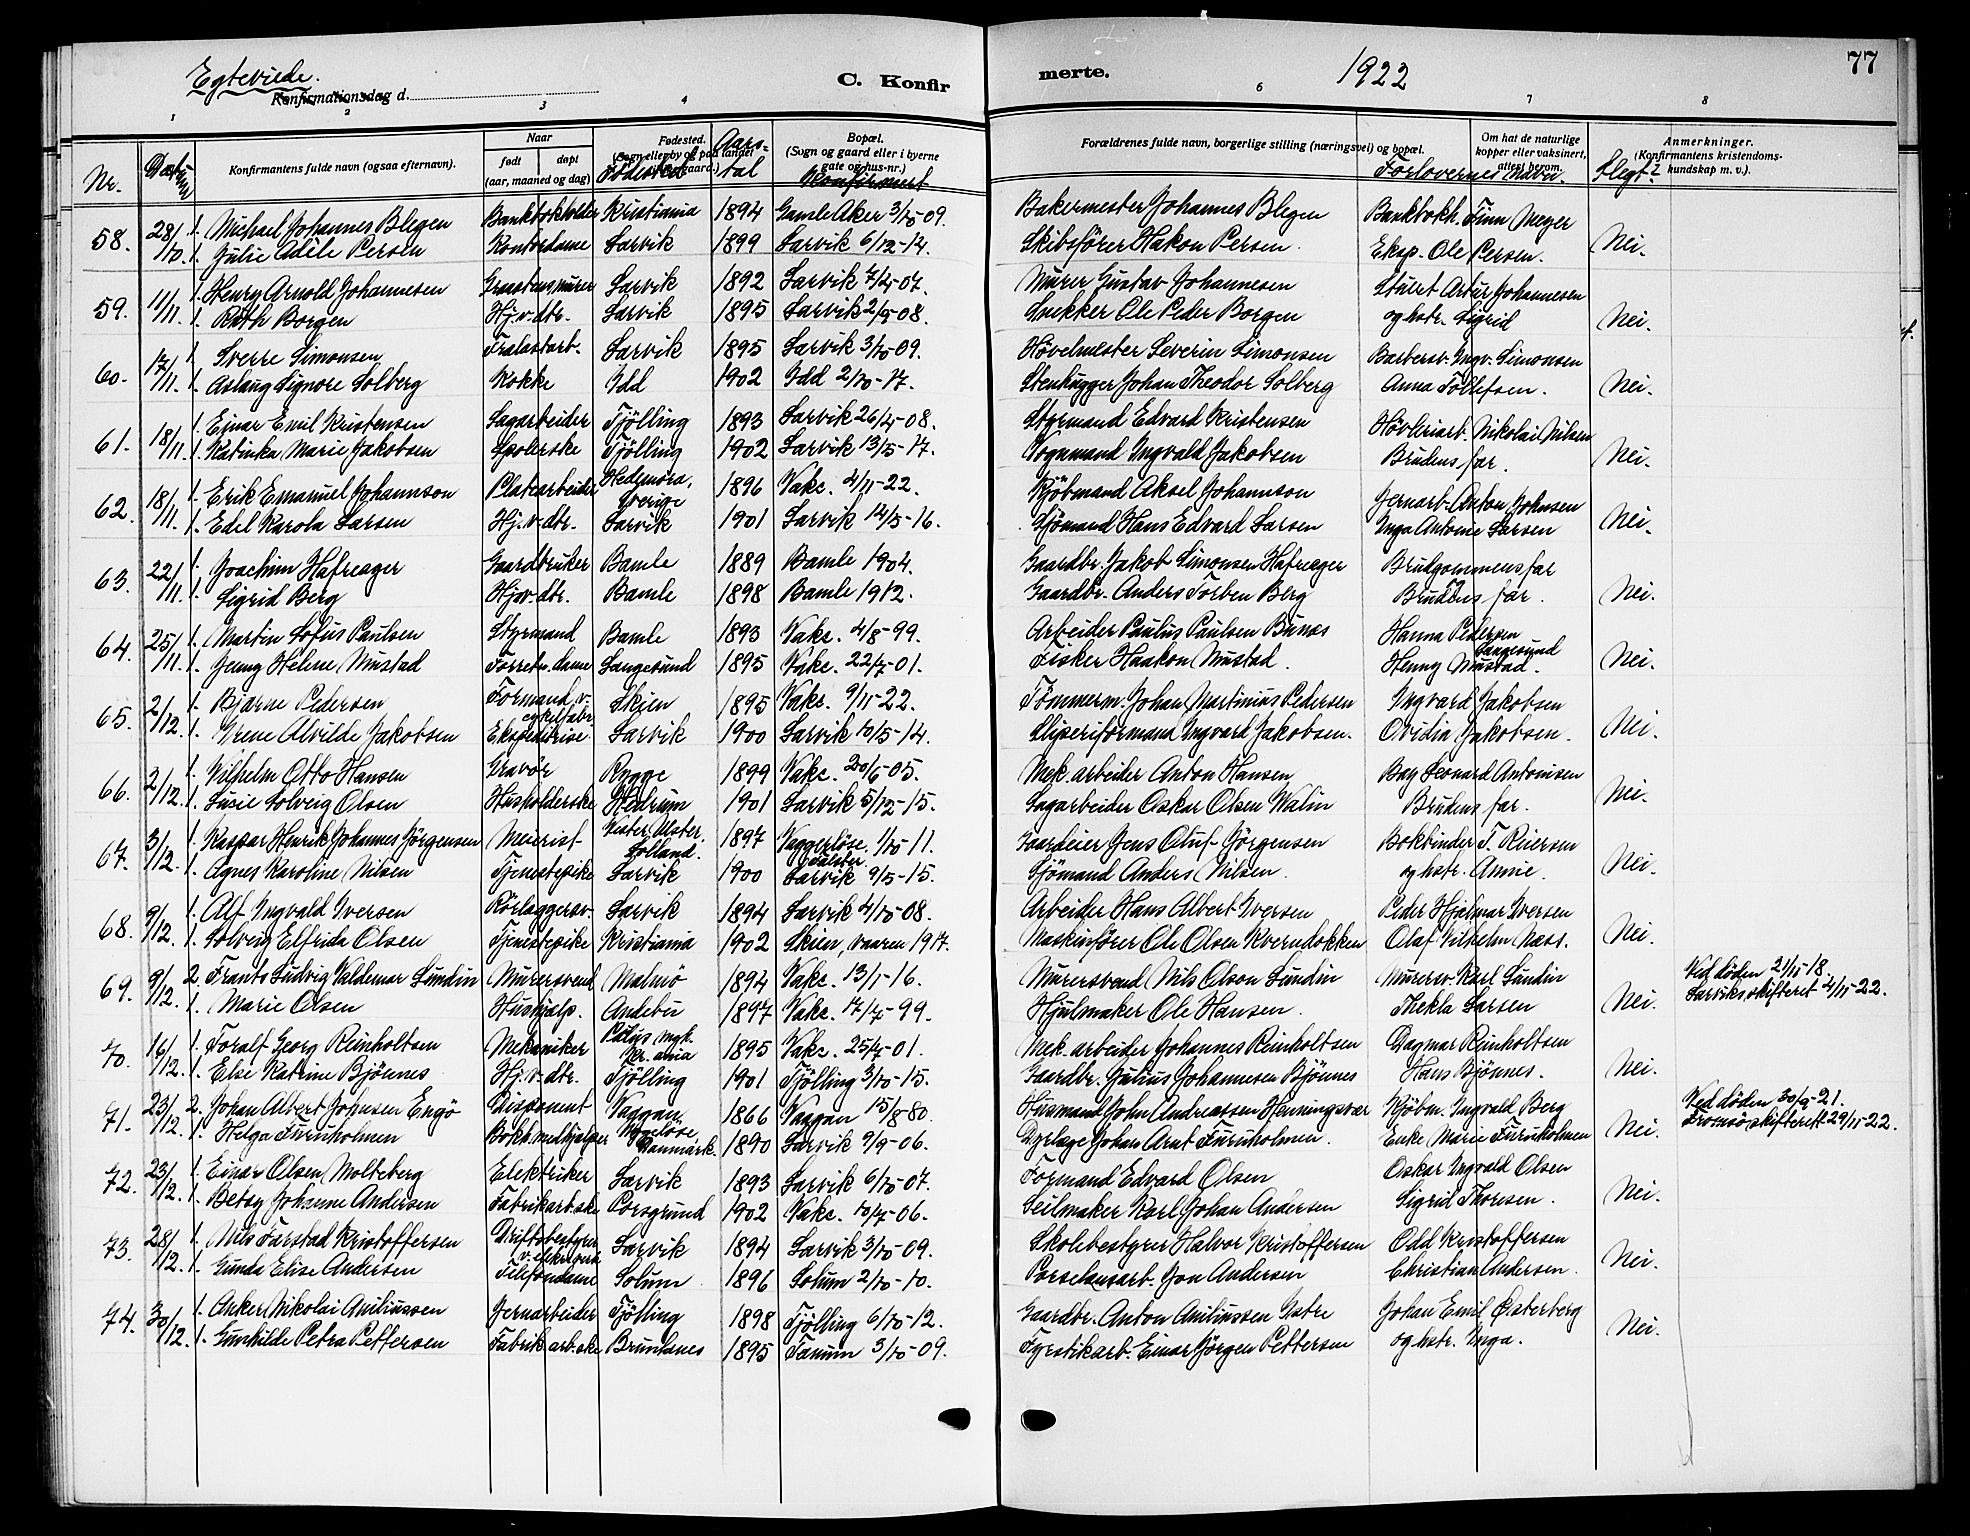 Egteviede. 1922 77
Konfirmationsdag d. C. Konfir merte.
1 2 3 4 6 7 8
Nr. Datum Konfirmantens fulde navn (ogsaa efternavn). Naar født døpt (aar, maaned og dag) Fødested. (Sogn eller by og paa landet gaard.) Fødested Aars-tal Bopæl. (Sogn og gaard eller i byerne gate og hus-nr.) Konfirmert Forældrenes fulde navn, borgerlige stilling (næringsvei) og bopæl. Forlovernes navn. Om hat de naturlige kopper eller vaksinert, attest herom. Slegt? Anmerkninger. (Konfirmantens kristendoms-kundskap m. v.).
58. 28/10. 1. Michael Johannes Blegen Bankbokholder Kristiania 1894 Gamle Aker 3/10-09. Bakermester Johannes Blegen Bankbokh. Finn Meyer
1. Julie Adèle Persen Kontordame Larvik 1899 Larvik 6/12-14. Skibsfører Hakon Persen. Eksp. Ole Persen. Nei.
59. 11/11. 1. Henry Arnold Johannesen Graastensmurer Larvik 1892 Larvik 7/4-07. Murer Gustav Johannesen Artur Johannesen
1. Ruth Borgen Hj.v.dtr. Larvik 1895 Larvik 2/5-08. Snekker Ole Peder Borgen og hstr. Sigrid Nei.
60. 17/11. 1. Sverre Simonsen Larvik 1895 Larvik 3/10-09. Høvelmester Severin Simonsen Barbersv. Ingv. Simonsen
1. Aslaug Signore Solberg Kokke Idd 1902 Idd 2/10-17. Stenhugger Johan Theodor Solberg Anna Tollefsen. Nei.
61. 18/11. 1. Einar Emil Kristensen Sagarbeider Tjølling 1893 Larvik 26/4-08. Styrmand Edvard Kristensen Høvleriarb. Nikolai Nilsen
1. Katinka Marie Jakobsen Spolerske Tjølling 1902 Larvik 13/5-17. Vognmand Ingvald Jakobsen Brudens far. Nei.
62. 18/11. 1. Erik Emanuel Johannson Platearbeider Hedemora, Sverige 1896 Vaks. 4/11-22. Kjøbmand Aksel Johannson Jernarb. Anton Johnsen
1. Edel Karola Larsen Hj.v.dtr. Larvik 1901 Larvik 14/5-16. Sjømand Hans Edvard Larsen Inga Antonie Larsen Nei.
63. 22/11. 1. Joachim Hafreager Gaardbruker Bamle 1889 Bamle 1904. Gaardbr. Jakob Simonsen Hafreager Brudgommens far
1. Sigrid Berg Hj.v.dtr. Bamle 1898 Bamle 1912. Gaardbr. Anders Torben Berg Brudens far. Nei.
64. 25/11. 1. Martin Sofus Paulsen Styrmand Bamle 1893 Vaks. 4/8-99. Arbeider Paulus Paulsen Bunes Hanna Pedersen
1. Jenny Helene Mustad Forretn.dame Langesund 1895 Vaks. 22/7-01. Fisker Haakon Mustad. Henny Mustad. Langesund Nei.
65. 2/12. 1. Bjarne Pedersen Formand v. cykelfabr. Skien 1895 Vaks. 9/11-22. Tømmerm. Johan Martinius Pedersen Ingvard Jakobsen
1. Yrene Alvilde Jakobsen Ekspeditrise Larvik 1900 Larvik 10/5-14. Sliperiformand Ingvard Jakobsen. Ovidia Jakobsen. Nei.
66. 2/12. 1. Vilhelm Otto Hansen Gravør Rygge 1899 Vaks. 20/6-05. Mek. arbeider Anton Hansen Leonard Antonisen
1. Susie Solveig Olsen Husholderske Hedrum 1901 Larvik 5/12-15. Sagarbeider Oskar Olsen Walin Brudens far. Nei.
67. 3/12. 1. Kaspar Henrik Johannes Jørgensen Meierist Vester Ulslev Lolland. 1897 Væggerløse, Falster 1/10-11. Gaardeier Jens Oluf Jørgensen Bokbinder T. Reiersen
1. Agnes Karoline Nilsen Tjenestepike Larvik 1900 Larvik 9/5-15. Sjømand Anders Nilsen. og hstr. Annie. Nei.
68. 9/12. 1. Alf Ingvald Iversen Rørlæggersv. Larvik 1894 Larvik 4/10-08. Arbeider Hans Albert Iversen Peder Hjalmar Iversen
1. Solveig Elfrida Olsen Tjenestepike Kristiania 1902 Skien, vaaren 1917. Maskinfører Ole Olsen Kverndokken Olaf Vilhelm Næss. Nei.
69. 9/12. 2. Frants Ludvig Valdemar Lundin Murersvend Malmø 1894 Vaks. 13/1-16. Murersvend Nils Olson Lundin Murersv. Karl Lundin Ved døden 21/11-18
1. Marie Olsen Hushjelp. Andebu 1897 Vaks. 17/7-99. Hjulmaker Ole Hansen. Thekla Larsen Nei. Larviks skifteret 4/11-22.
70. 16/12. 1. Toralf Georg Reinholtsen Mekaniker Paulus mgk. Kr.ania 1895 Vaks. 25/7-01. Mek. arbeider Johannes Reinholtsen Dagmar Reinholtsen
1. Else Katrine Bjønnes Hj.v.dtr. Tjølling 1901 Tjølling 3/10-15. Gaardbr. Julius Johannesen Bjønnes Hans Bjønnes. Nei.
71. 23/12. 2. Johan Albert Johnsen Engø Disponent Vaagan 1866 Vaagan 15/8-80. Husmand John Andreassen Henningsvær Kjøbm. Ingvald Berg Ved døden 30/9-21.
1. Helga Furuholmen Bokh.medhjælper Ugeløse, Danmark. 1890 Larvik 9/9-06. Dyrlæge Johan Arnt Furuholmen. Enke Marie Furuholmen Nei. Tromsø skifteret 29/11-22.
72. 23/12. 1. Einar Olsen Molteberg Elektriker Larvik 1893 Larvik 6/10-07. Formand Edvard Olsen Oskar Ingvald Olsen
1. Betsy Johanne Andersen Fabrikarb.ske Porsgrund 1902 Vaks. 10/7-06. Seilmaker Karl Johan Andersen Sigrid Thoresen. Nei.
73. 28/12. 1. Nils Farstad Kristoffersen Driftsbestyrer v. elektr. Larvik 1894 Larvik 3/10-09. Skolebestyrer Halvor Kristoffersen Odd Kristoffersen
1. Gunda Elise Andersen Telefondame Solum 1896 Solum 2/10-10. Porselænsarb. Jon Andersen Christian Andersen. Nei.
74. 30/12. 1. Anker Nikolai Anthiussen Jernarbeider Tjølling 1898 Tjølling 6/10-12. Gaardbr. Anton Anthiussen Istre Johan Emil Østerberg
1. Gunhilde Petra Pettersen Fabrikarb.ske Brunlanes 1895 Tanum 3/10-09. Fyrstikarb. Einar Jørgen Pettersen og hstr. Inga. Nei.